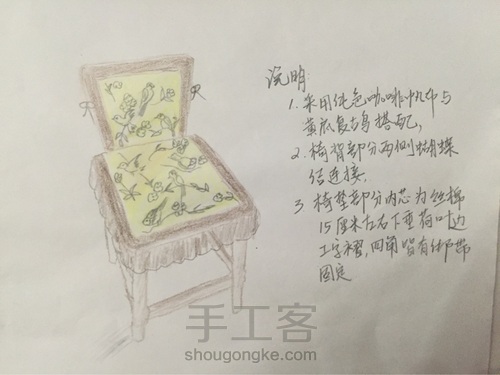 说明:
1. 采用纯色咖啡帆布与
黄底复古鸟搭配,
2. 椅背部分两侧蝴蝶
结连接.
3 椅垫部分内芯为丝棉
15厘米左右下垂荷叶边
工字褶,四角皆有绑带
固定
手工客
shougongke.com